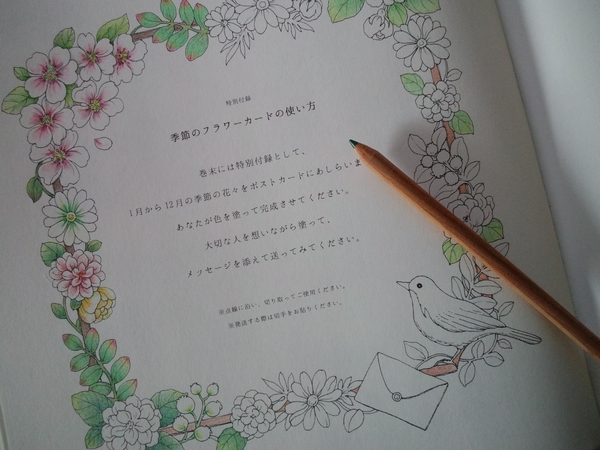 特別付録
季節のフラワーカードの使い方
巻末には特別付録として、
1月から12月の季節の花々をポストカードにあしらいま
あなたが色を塗って完成させてください。
大切な人を想いながら塗って、
メッセージを添えて送ってみてください。
※点線に沿い、切り取ってご使用ください。
※郵送する際は切手をお貼りください。